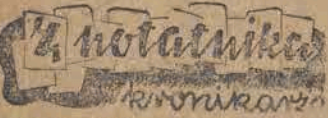 Z notatnika
kronikarza